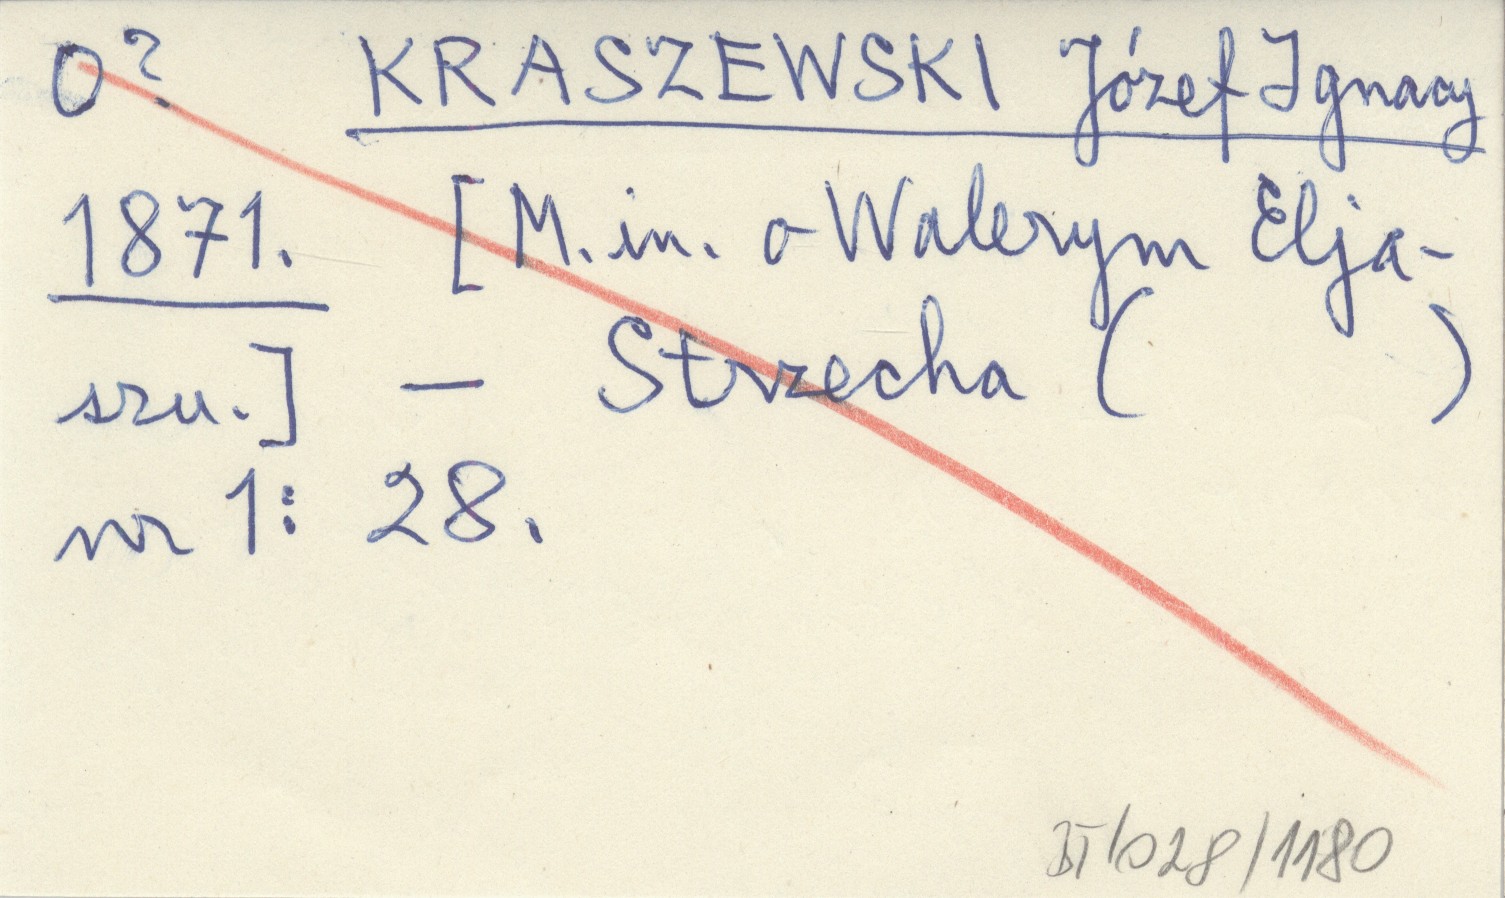 O? KRASZEWSKI Józef Ignacy
1871. [M.in. o Walerym Elja-
szu.] — Strzecha ( )
nr 1: 28.
028/1180